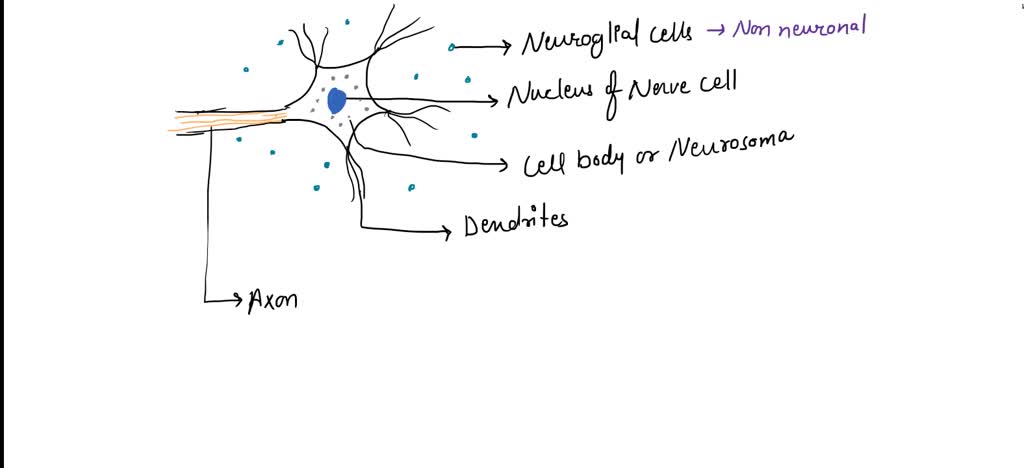 Neuroglial cells → Non neuronal
Nucleus of Nerve cell
Cell body or Neurosoma
Dendrites
Axon